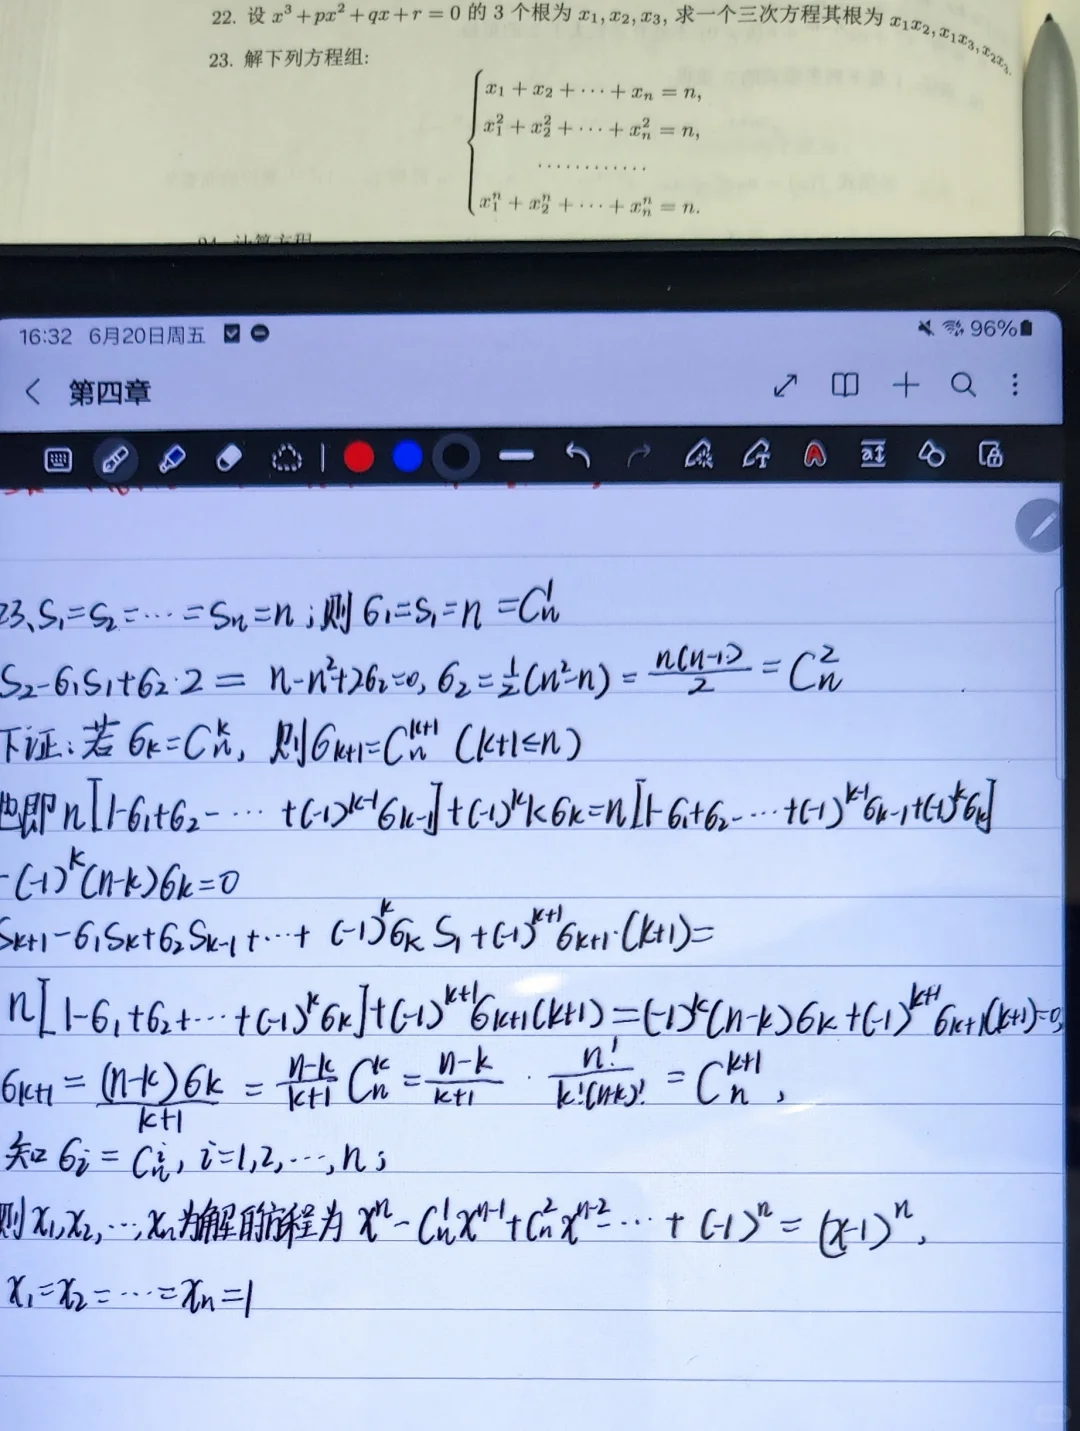 22. 设 x³+px²+qx+r=0 的 3 个根为 x₁, x₂, x₃, 求一个三次方程其根为 x₁x₂, x₁x₃, x₂x₃.
23. 解下列方程组:
x₁ + x₂ + ··· + xₙ = n,
x₁² + x₂² + ··· + xₙ² = n,
············
x₁ⁿ + x₂ⁿ + ··· + xₙⁿ = n.
16:32 6月20日周五 96%
第四章
23、S₁=S₂=···=Sₙ=n;则 б₁=S₁=n=Cₙ¹
S₂-б₁S₁+б₂·2= n-n²+2б₂=0, б₂=½(n²-n)=n(n-1)/2=Cₙ²
下证:若 бₖ=Cₙᵏ, 则 бₖ₊₁=Cₙᵏ⁺¹ (k+1≤n)
也即 n[1-б₁+б₂-···+(-1)ᵏ⁻¹бₖ₋₁]+(-1)ᵏkбₖ=n[1-б₁+б₂-···+(-1)ᵏ⁻¹бₖ₋₁+(-1)ᵏбₖ]
-(-1)ᵏ(n-k)бₖ=0
Sₖ₊₁-б₁Sₖ+б₂Sₖ₋₁+···+(-1)ᵏбₖS₁+(-1)ᵏ⁺¹бₖ₊₁·(k+1)=
n[1-б₁+б₂+···+(-1)ᵏбₖ]+(-1)ᵏ⁺¹бₖ₊₁(k+1)=(-1)ᵏ(n-k)бₖ+(-1)ᵏ⁺¹бₖ₊₁(k+1)=0,
бₖ₊₁=(n-k)бₖ/(k+1)=(n-k)/(k+1) Cₙᵏ=(n-k)/(k+1)·n!/(k!(n-k)!)=Cₙᵏ⁺¹,
知 бᵢ=Cₙⁱ, i=1,2,···,n;
则 x₁,x₂,···,xₙ为解的方程为 xⁿ-Cₙ¹xⁿ⁻¹+Cₙ²xⁿ⁻²-···+(-1)ⁿ=(x-1)ⁿ,
x₁=x₂=···=xₙ=1